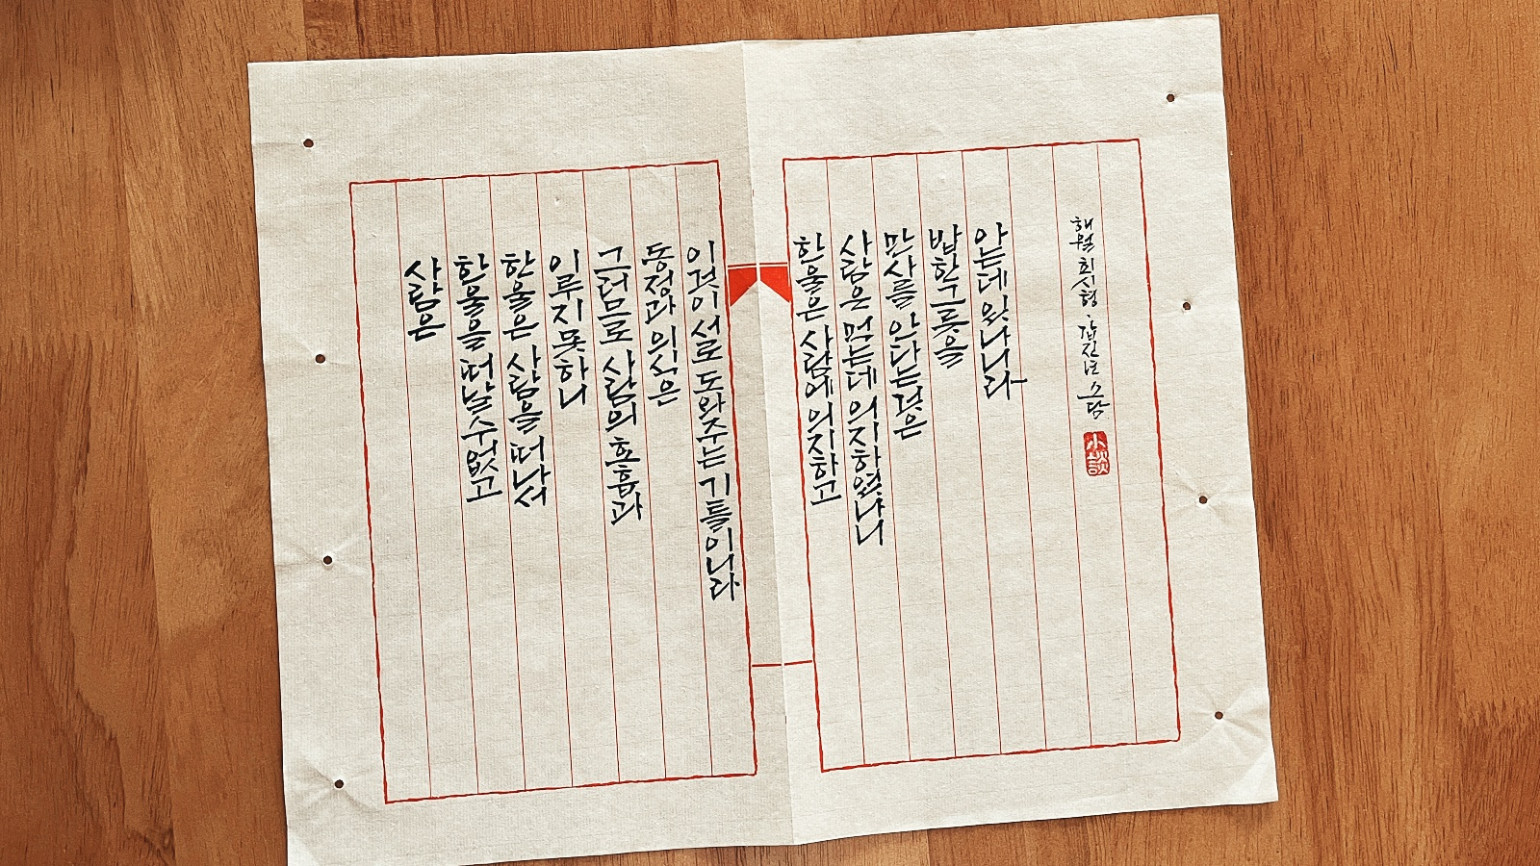 사람은
한울을 떠날수없고
한울은 사람을 떠나서
이루지못하니
그러므로 사람의 호흡과
동정과 의식은
이것이 서로 도와주는 기틀이니라
한울은 사람에 의지하고
사람은 먹는데 의지하였나니
만사를 안다는것은
밥한그릇을
아는데 있나니라
해월 최시형 · 갑진년 소담
小談